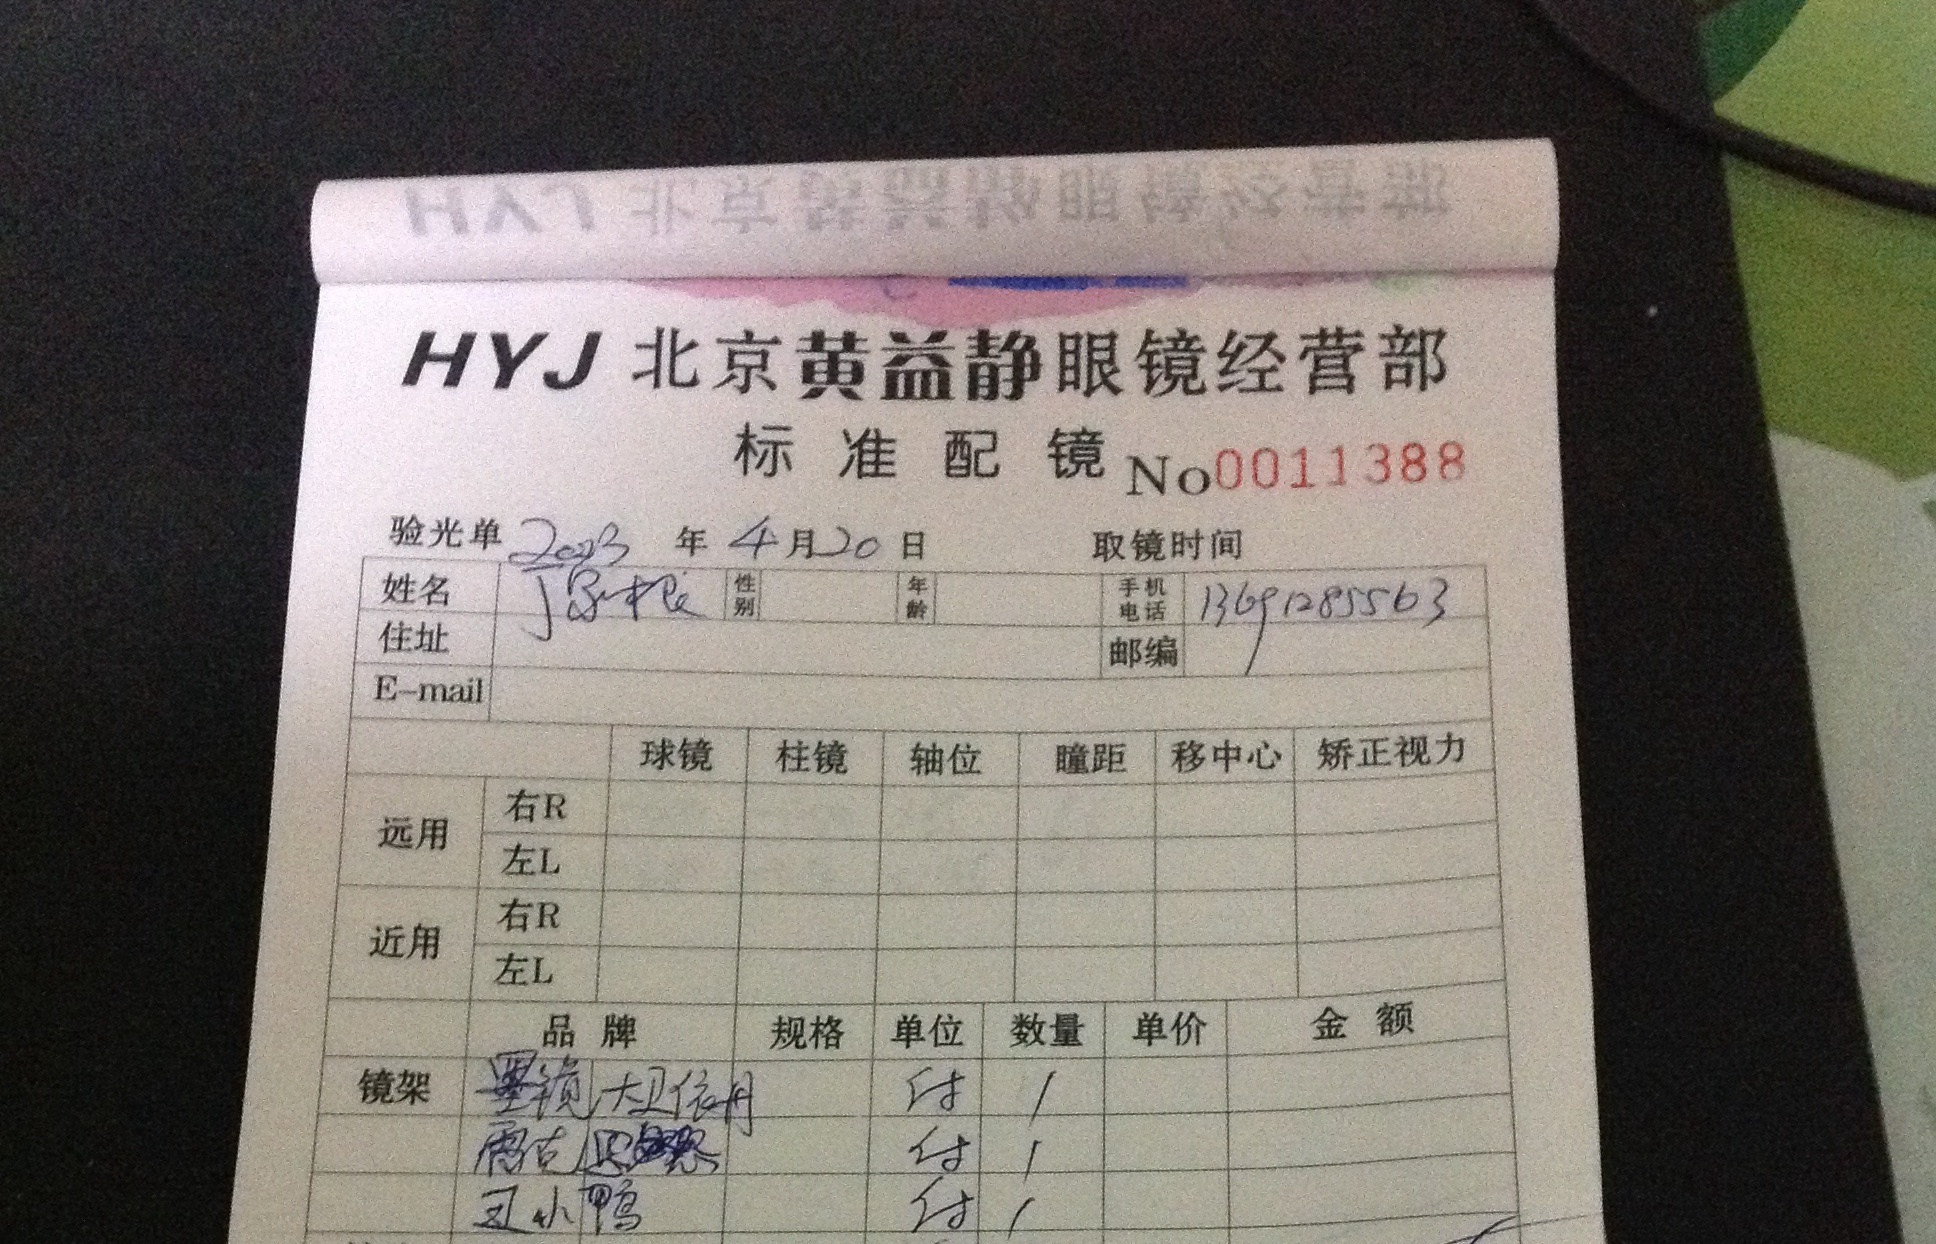 HYJ 北京黄益静眼镜经营部
标准配镜 No 0011388
验光单 2023 年 4 月 20 日 取镜时间
姓名 丁 根 性别 年龄 手机电话 13691285563
住址 邮编
E-mail
球镜 柱镜 轴位 瞳距 移中心 矫正视力
远用 右R
左L
近用 右R
左L
品牌 规格 单位 数量 单价 金额
镜架 墨镜 大卫依丹 付 1
雷古 付 1
丑小鸭 付 1